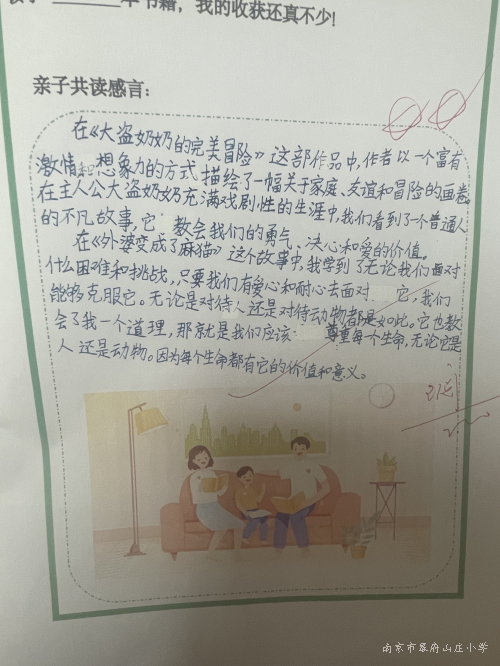 本书籍，我的收获还真不少!
亲子共读感言：
在《大盗奶奶的完美冒险》这部作品中，作者以一个富有
激情和想象力的方式描绘了一幅关于家庭、友谊和冒险的画卷。
在主人公大盗奶奶充满戏剧性的生涯中，我们看到了一个普通人
的不凡故事，它 教会我们的勇气、决心和爱的价值。
在《外婆变成了麻猫》这个故事中，我学到了无论我们面对
什么困难和挑战，只要我们有爱心和耐心去面对 它，我们
能够克服它。无论是对待人还是对待动物都是如此。它也教
会了我一个道理，那就是我们应该 尊重每个生命，无论它是
人还是动物。因为每个生命都有它的价值和意义。
南京市幕府山庄小学